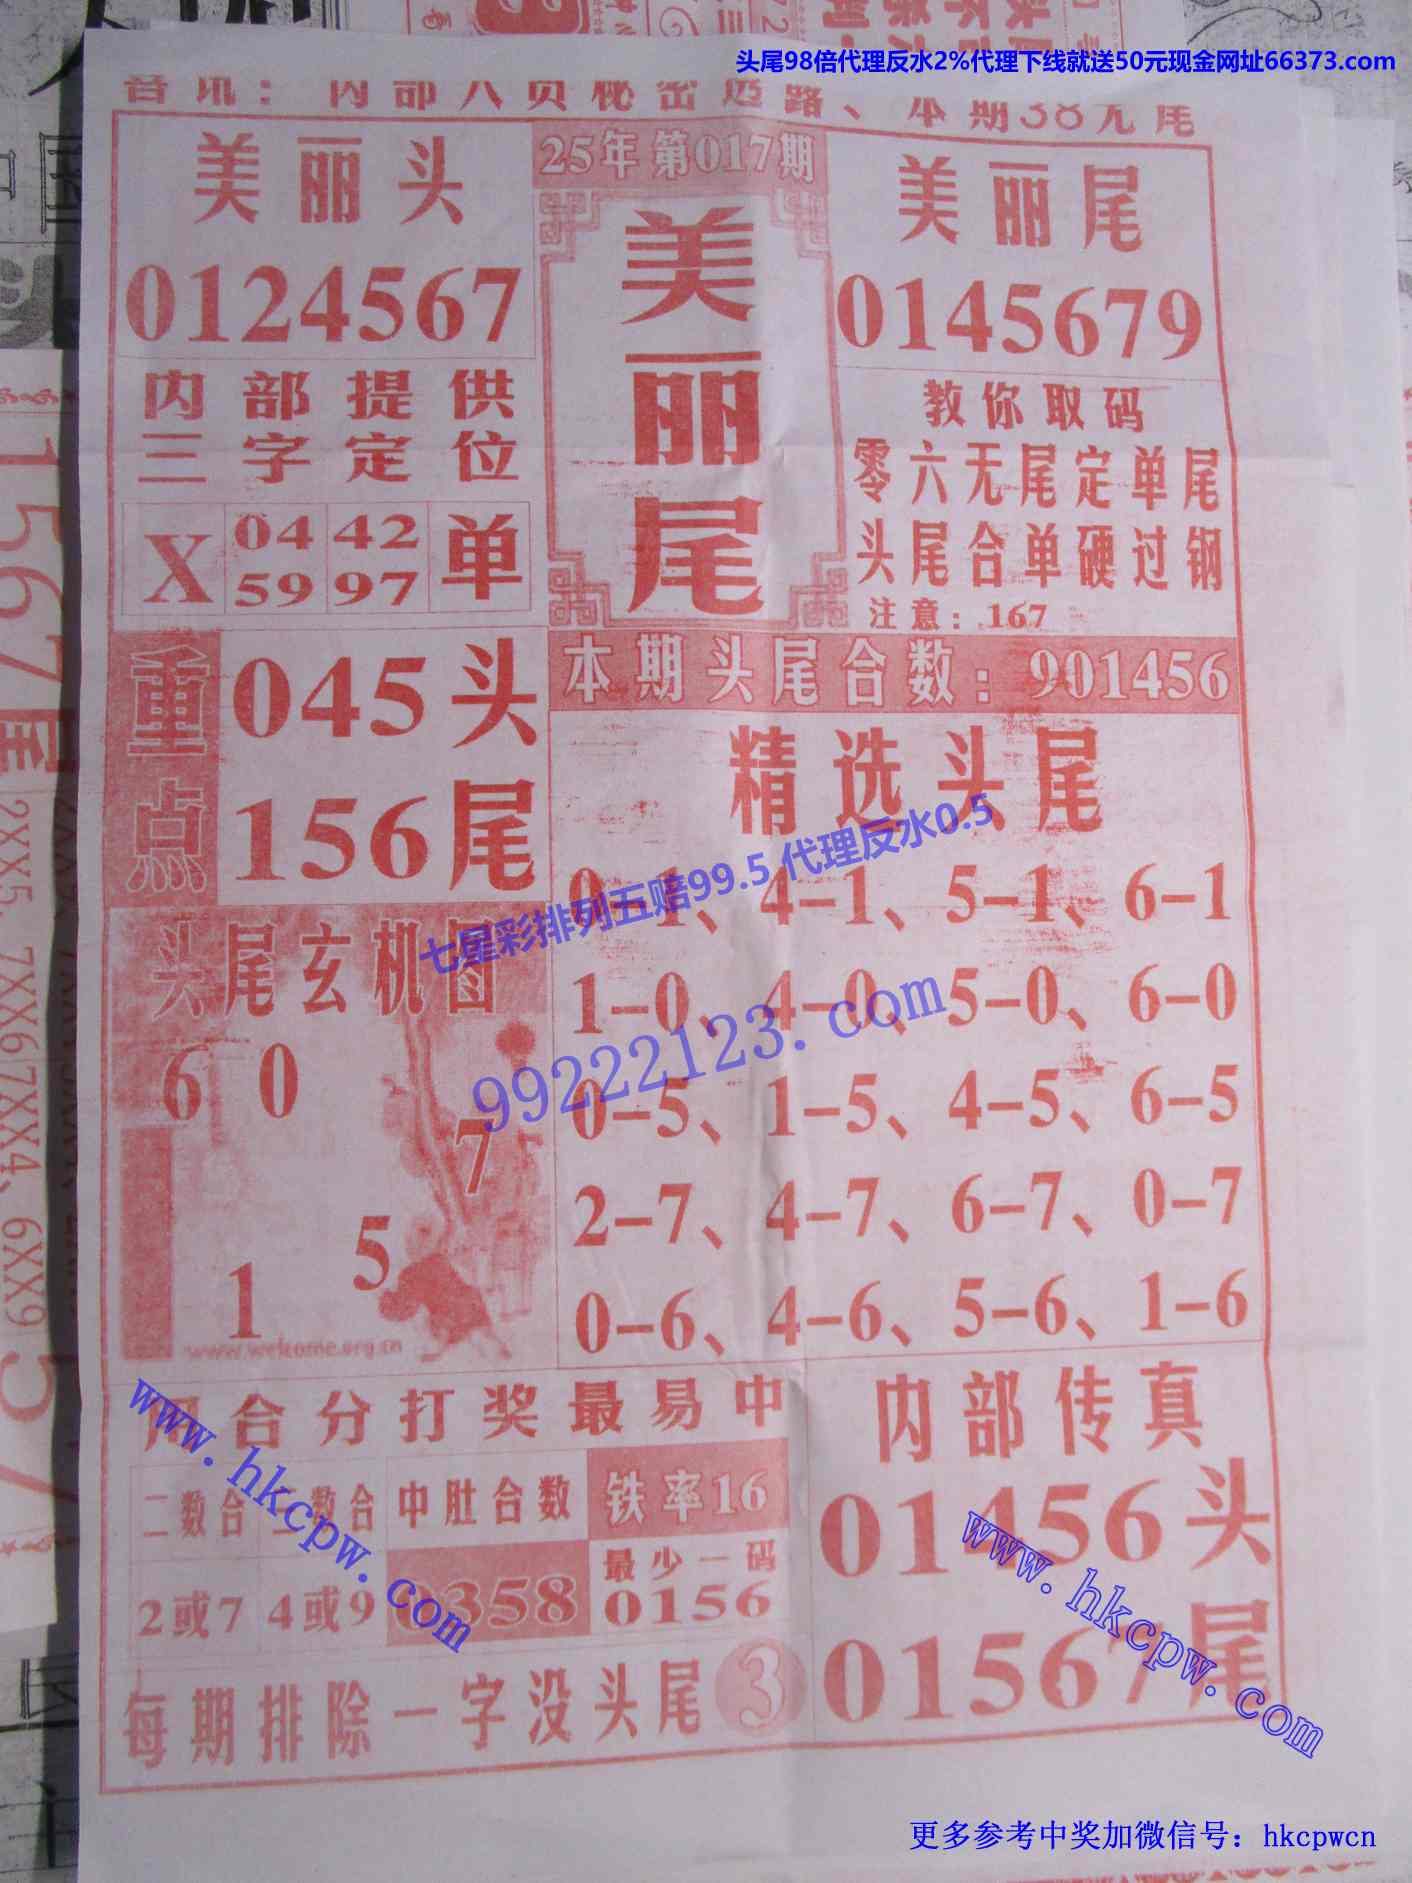 头尾98倍代理反水2%代理下线就送50元现金网址66373.com
音讯：内部人员秘密透路、本期38无尾
美丽头
0124567
25年第017期
美丽尾
美丽尾
0145679
内部提供
三字定位
X 04 42 单
59 97
教你取码
零六无尾定单尾
头尾合单硬过钢
注意：167
重点
045头
156尾
本期头尾合数：901456
精选头尾
0-1、4-1、5-1、6-1
1-0、4-0、5-0、6-0
0-5、1-5、4-5、6-5
2-7、4-7、6-7、0-7
0-6、4-6、5-6、1-6
七星彩排列五赔99.5 代理反水0.5
99222123.com
头尾玄机图
6 0
7
5
1
www.welkome.org.cn
合分打奖最易中
二数合 数合 中肚合数 铁率16
2或7 4或9 0358 最少一码
0156
每期排除一字没头尾 3
内部传真
01456头
01567尾
www.hkcpw.com
www.hkcpw.com
更多参考中奖加微信号：hkcpwcn
1567尾
2XX5、7XX6
7XX4、6XX9